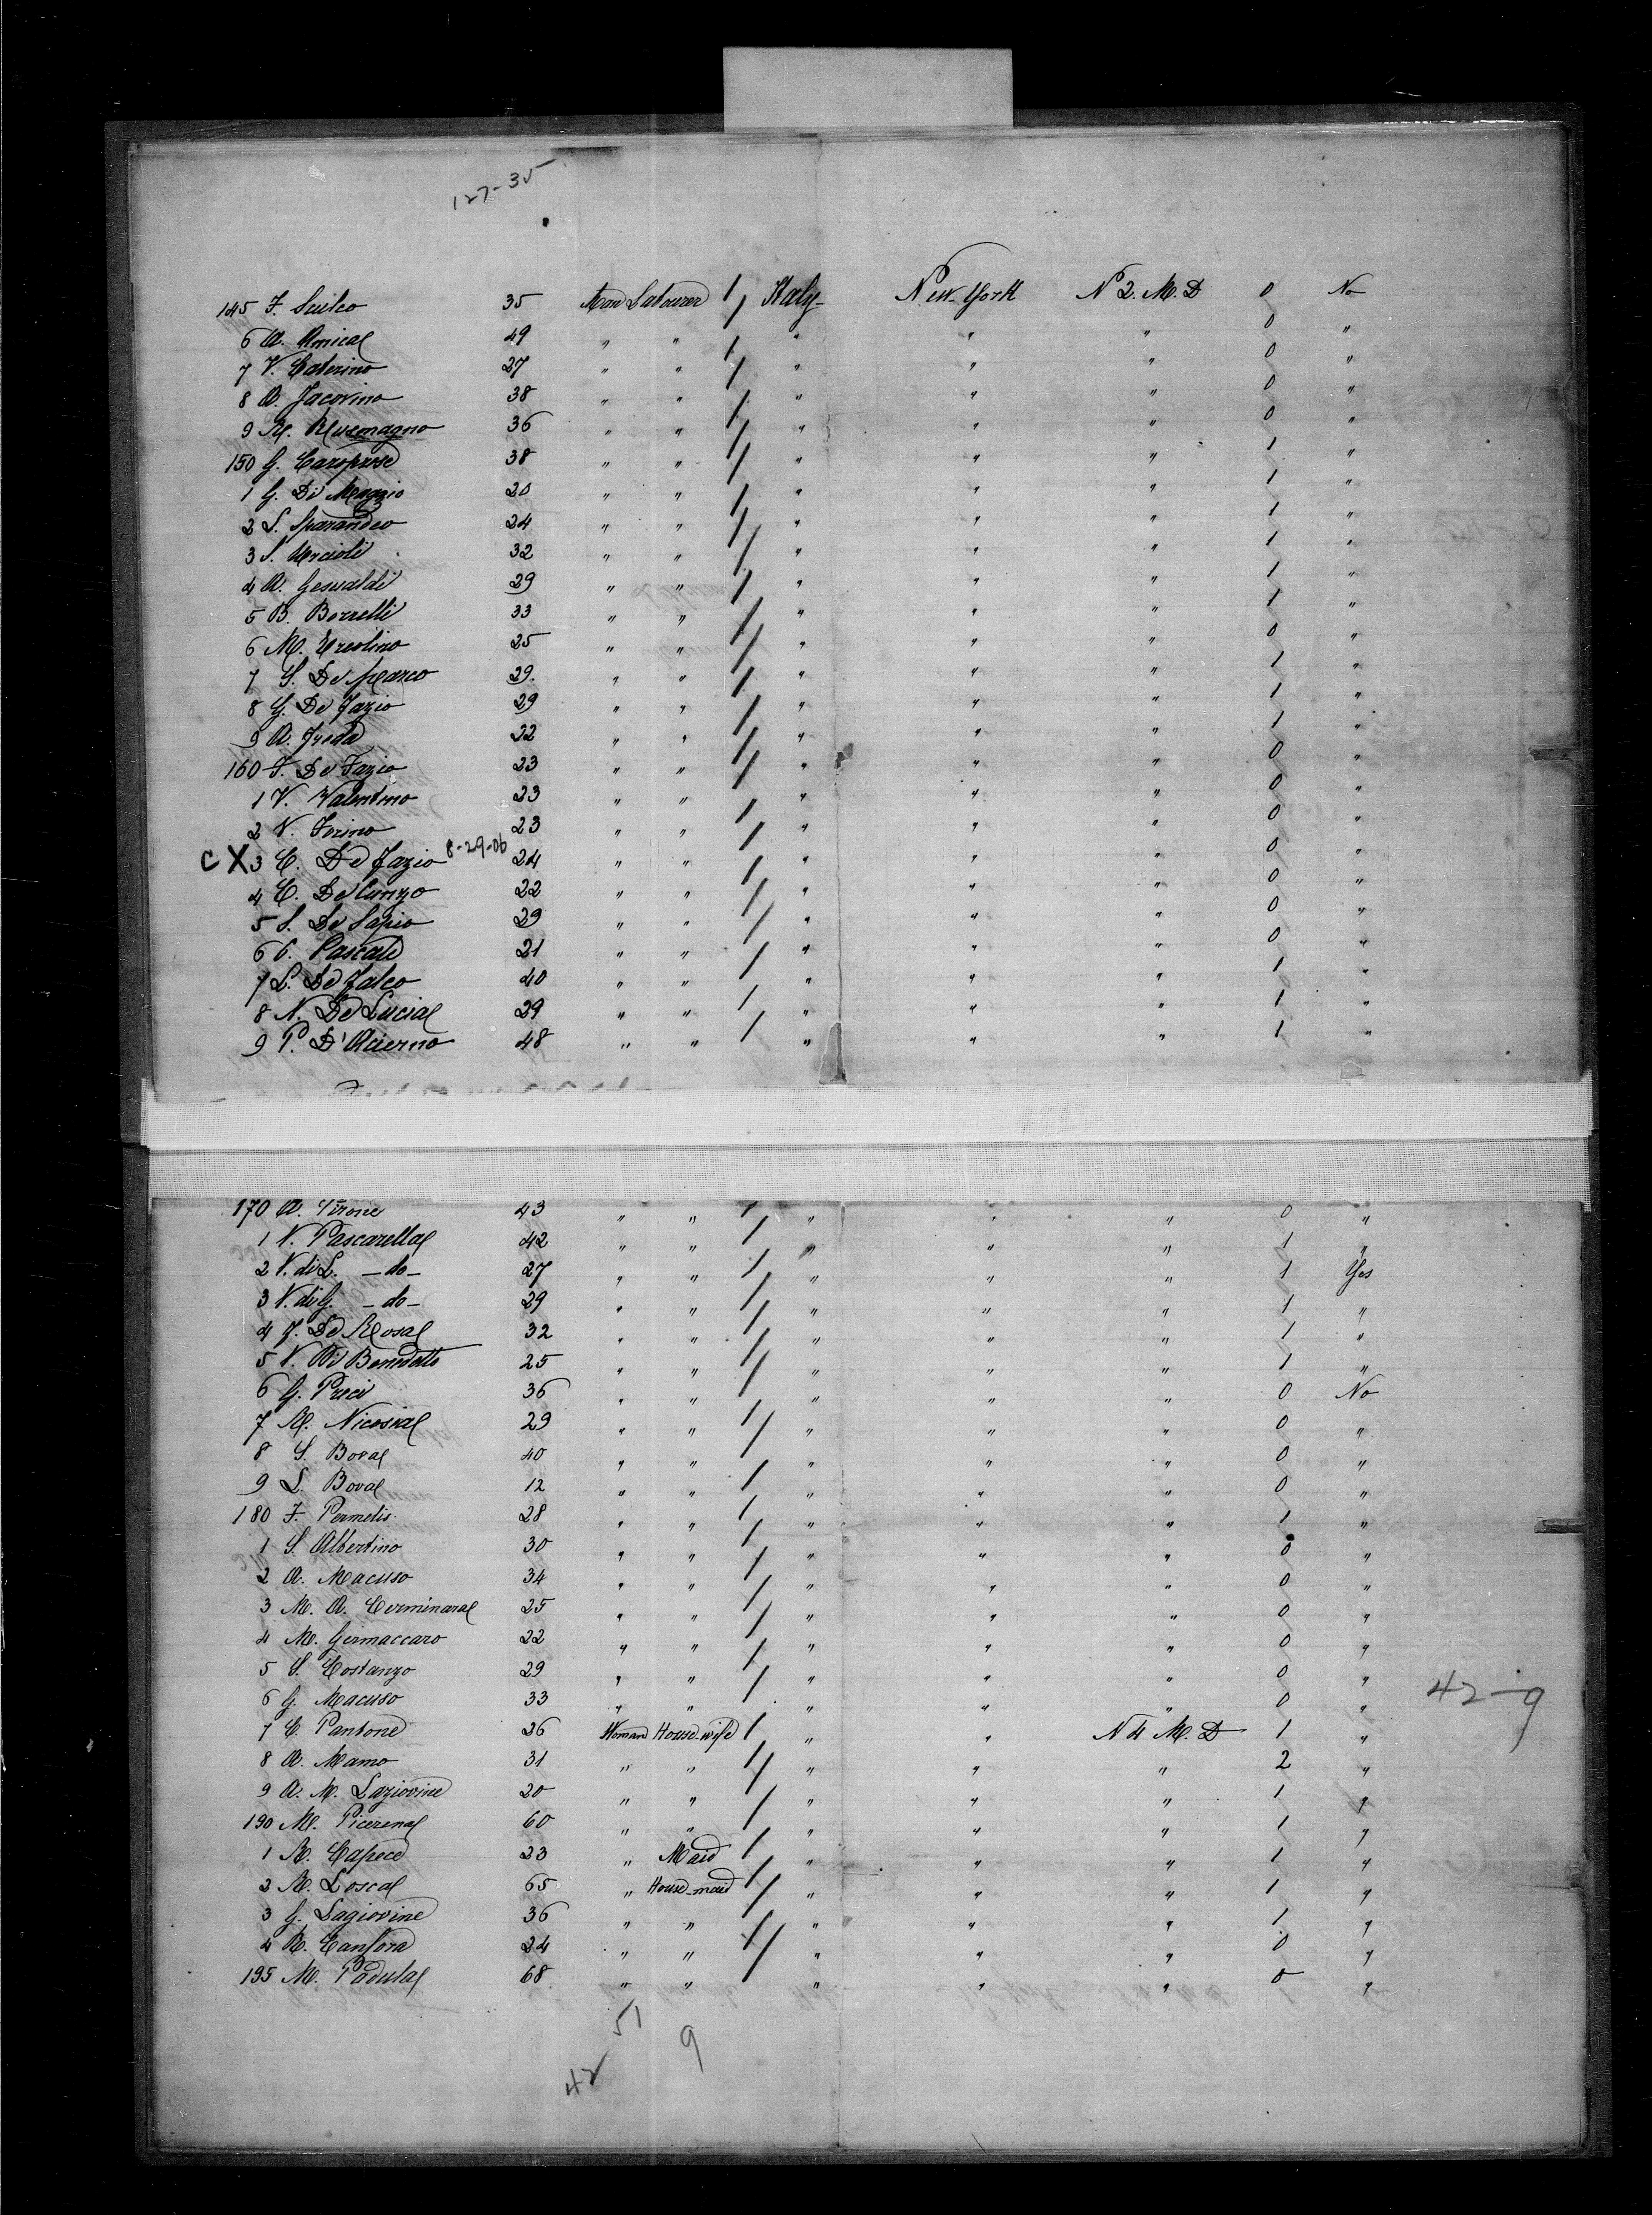 127-35
145 F. Suilco 35 Man Labourer 1 Italy New-York N 2. M. D 0 No
6 A. Amica 49 " " 1 " " " 0 "
7 V. Caterino 27 " " 1 " " " 0 "
8 A. Jacovino 38 " " 1 " " " 0 "
9 R. Rusomagno 36 " " 1 " " " 0 "
150 G. Caroprese 38 " " 1 " " " 1 "
1 G. Di Maggio 20 " " 1 " " " 1 "
2 L. Sparandeo 24 " " 1 " " " 1 "
3 S. Urcioli 32 " " 1 " " " 1 "
4 A. Geswaldi 29 " " 1 " " " 1 "
5 B. Borrelli 33 " " 1 " " " 1 "
6 M. Ercolino 25 " " 1 " " " 0 "
7 S. De Marco 29 " " 1 " " " 1 "
8 G. De Fazio 29 " " 1 " " " 1 "
9 A. Freda 22 " " 1 " " " 1 "
160 F. De Fazio 23 " " 1 " " " 0 "
1 V. Valentino 23 " " 1 " " " 0 "
2 V. Forino 23 " " 1 " " " 0 "
C X 3 C. De Fazio 8-29-06 24 " " 1 " " " 0 "
4 C. De Cunzo 22 " " 1 " " " 0 "
5 S. De Sapio 29 " " 1 " " " 0 "
6 Pascale 21 " " 1 " " " 0 "
7 L. De Falco 40 " " 1 " " " 1 "
8 N. De Lucia 29 " " 1 " " " 1 "
9 P. D'Acierno 48 " " 1 " " " 1 "
170 A. Tirone 43 " " 1 " " " 0 "
1 V. Pascarella 42 " " 1 " " " 1 "
2 V. di L. -do- 27 " " 1 " " " 1 Yes
3 V. di G. -do- 29 " " 1 " " " 1 "
4 F. De Rosa 32 " " 1 " " " 1 "
5 V. Di Benedetto 25 " " 1 " " " 1 "
6 G. Preci 36 " " 1 " " " 0 No
7 R. Nicosia 29 " " 1 " " " 0 "
8 S. Bova 40 " " 1 " " " 0 "
9 L. Bova 12 " " 1 " " " 0 "
180 F. Permelis 28 " " 1 " " " 1 "
1 S. Albertino 30 " " 1 " " " 0 "
2 A. Macuso 34 " " 1 " " " 0 "
3 M. A. Cerminara 25 " " 1 " " " 0 "
4 M. Germaccaro 22 " " 1 " " " 0 "
5 S. Costanzo 29 " " 1 " " " 0 "
6 G. Macuso 33 " " 1 " " " 0 "
42-9
7 C. Pantone 26 Woman House-wife 1 " " N 4 M. D 1 "
8 A. Mamo 31 " " 1 " " " 2 "
9 A. M. Laziovine 20 " " 1 " " " 1 "
190 M. Picerena 60 " " 1 " " " 1 "
1 R. Capece 23 " Maid 1 " " " 1 "
2 R. Losca 65 " House-maid 1 " " " 1 "
3 G. Lagiovine 36 " " 1 " " " 1 "
4 R. Canfora 24 " " 1 " " " 0 "
195 M. Padula 68 " " 1 " " " 0 "
51
42 9